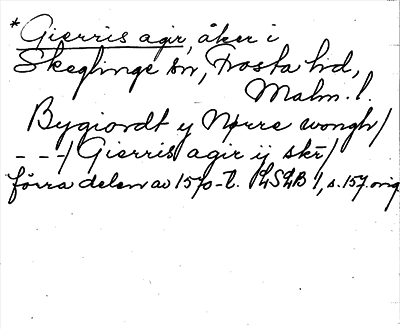 * Gierris agir, åker i
Skeglinge sn, Frosta hd,
Malm. l.
Bygiordt y Nørre wongh/
---/ Gierris agir ij skr/
förra delen av 1570-t. LSLB 1, s. 157. orig.